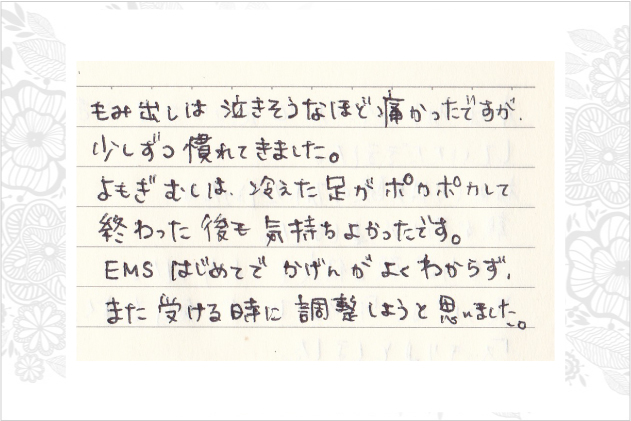 もみ出しは 泣きそうなほど痛かったですが、
少しずつ慣れてきました。
よもぎむしは、冷えた足がポカポカして
終わった後も気持ちよかったです。
EMS はじめてで かげんがよくわからず、
また受ける時に調整しようと思いました。